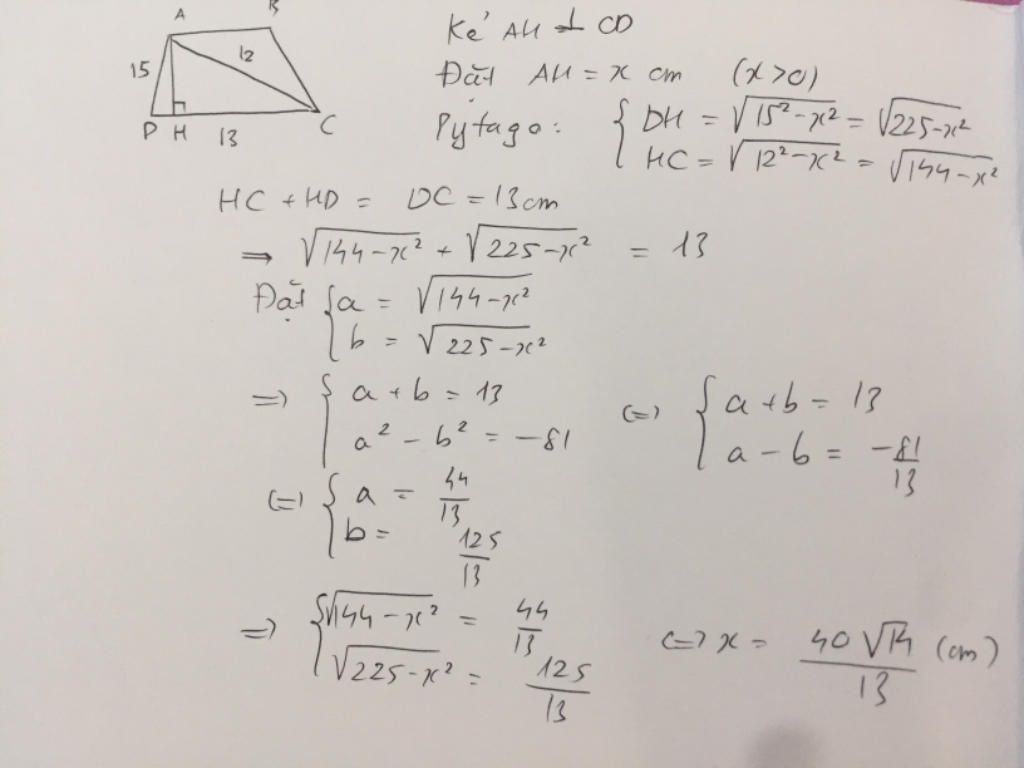 A B
15 12
D H 13 C
Kẻ AH ⊥ CD
Đặt AH = x cm (x>0)
Pytago: { DH = √(15² - x²) = √(225-x²)
HC = √(12² - x²) = √(144-x²)
HC + HD = DC = 13cm
⇒ √(144-x²) + √(225-x²) = 13
Đặt { a = √(144-x²)
b = √(225-x²)
=) { a + b = 13 (=) { a + b = 13
a² - b² = -81 a - b = -81/13
(=) { a = 44/13
b = 125/13
=) { √(144-x²) = 44/13
√(225-x²) = 125/13 (=) x = 40√14/13 (cm)